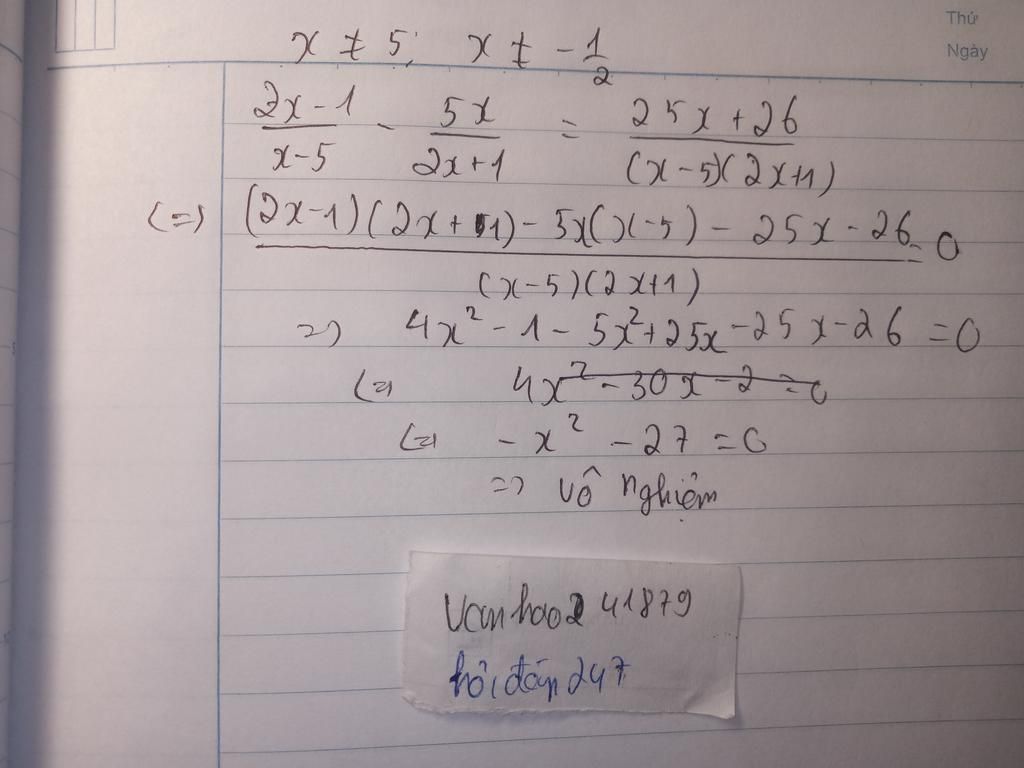 Thứ
Ngày
x ≠ 5; x ≠ -1/2
(2x-1)/(x-5) - 5x/(2x+1) = (25x+26)/((x-5)(2x+1))
(=) ((2x-1)(2x+1) - 5x(x-5) - 25x - 26)/((x-5)(2x+1)) = 0
=) 4x² - 1 - 5x² + 25x - 25x - 26 = 0
(= 4x² - 30x - 2 = 0
(=) - x² - 27 = 0
=) vô nghiệm
Vanhao2 41879
hỏi đáp 247